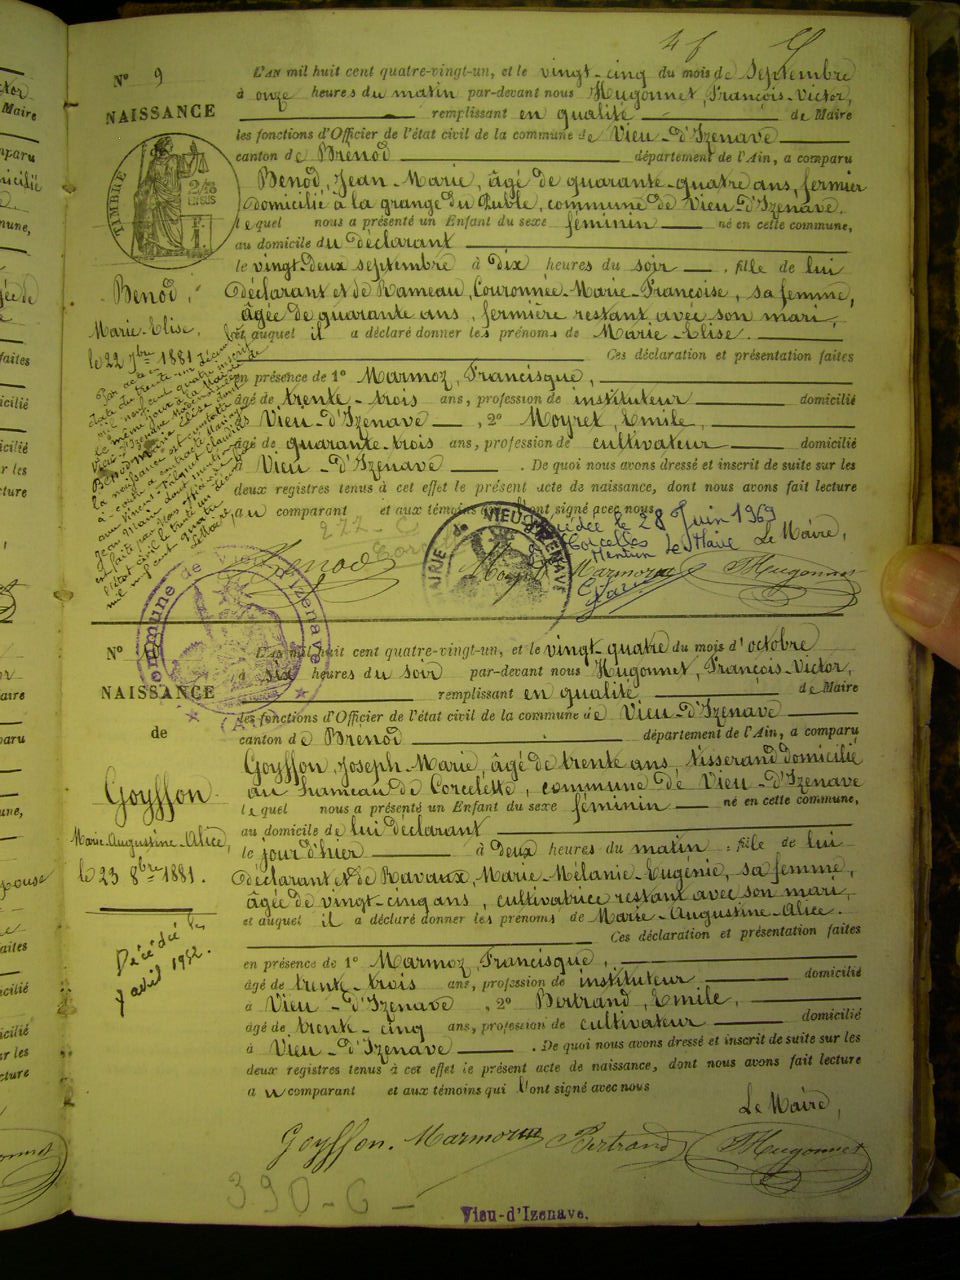 N° 9
NAISSANCE
TIMBRE
Benod,
Marie-Elise,
le 22 7bre 1881
L'AN mil huit cent quatre-vingt-un, et le vingt-cinq du mois de Septembre
à onze heures du matin par-devant nous Hugonnet, François-Victor,
remplissant en qualité de Maire
les fonctions d'Officier de l'état civil de la commune de Vieu-d'Izenave
canton de Brénod département de l'Ain, a comparu
Benod, Jean-Marie, âgé de quarante-quatre ans, fermier
domicilié à la grange du Ruble, commune de Vieu-d'Izenave.
lequel nous a présenté un Enfant du sexe féminin né en cette commune,
au domicile du déclarant
le vingt-deux septembre à dix heures du soir, fille de lui
déclarant et de Rameau, Couronnée-Marie-Françoise, sa femme,
âgée de quarante ans, fermière restant avec son mari,
et auquel il a déclaré donner les prénoms de Marie-Elise.
Ces déclaration et présentation faites
en présence de 1° Marmoz, Francisque,
âgé de trente-trois ans, profession de instituteur domicilié
à Vieu-d'Izenave, 2° Moyret, Emile,
âgé de quarante-trois ans, profession de cultivateur domicilié
à Vieu-d'Izenave. De quoi nous avons dressé et inscrit de suite sur les
deux registres tenus à cet effet le présent acte de naissance, dont nous avons fait lecture
au comparant et aux témoins qui l'ont signé avec nous
272-C
Décédée le 28 Juin 1969
Corcelles
Mention Le Maire
Le Maire,
Benod Marmoz Hugonnet
MAIRIE de VIEU-D'IZENAVE
Commune de Vieu d'Izenave
(AIN)
N°
NAISSANCE
de
Goyffon
Marie-Augustine-Alice,
le 23 8bre 1881.
Décédée le
7 avril 1952.
L'AN mil huit cent quatre-vingt-un, et le vingt-quatre du mois d'octobre
à six heures du soir par-devant nous Hugonnet, François-Victor,
remplissant en qualité de Maire
les fonctions d'Officier de l'état civil de la commune de Vieu-d'Izenave
canton de Brénod département de l'Ain, a comparu
Goyffon, Joseph-Marie, âgé de trente ans, tisserand domicilié
au hameau de Corcelette, commune de Vieu-d'Izenave
lequel nous a présenté un Enfant du sexe féminin né en cette commune,
au domicile de lui déclarant
le jour d'hier à deux heures du matin, fille de lui
déclarant et de Ravaux, Marie-Mélanie-Eugénie, sa femme,
âgée de vingt-cinq ans, cultivatrice restant avec son mari,
et auquel il a déclaré donner les prénoms de Marie-Augustine-Alice.
Ces déclaration et présentation faites
en présence de 1° Marmoz, Francisque,
âgé de trente-trois ans, profession de instituteur domicilié
à Vieu-d'Izenave, 2° Bertrand, Emile,
âgé de trente-cinq ans, profession de cultivateur domicilié
à Vieu-d'Izenave. De quoi nous avons dressé et inscrit de suite sur les
deux registres tenus à cet effet le présent acte de naissance, dont nous avons fait lecture
au comparant et aux témoins qui l'ont signé avec nous
Le Maire,
Goyffon. Marmoz Bertrand Hugonnet
390-C-
Vieu-d'Izenave.